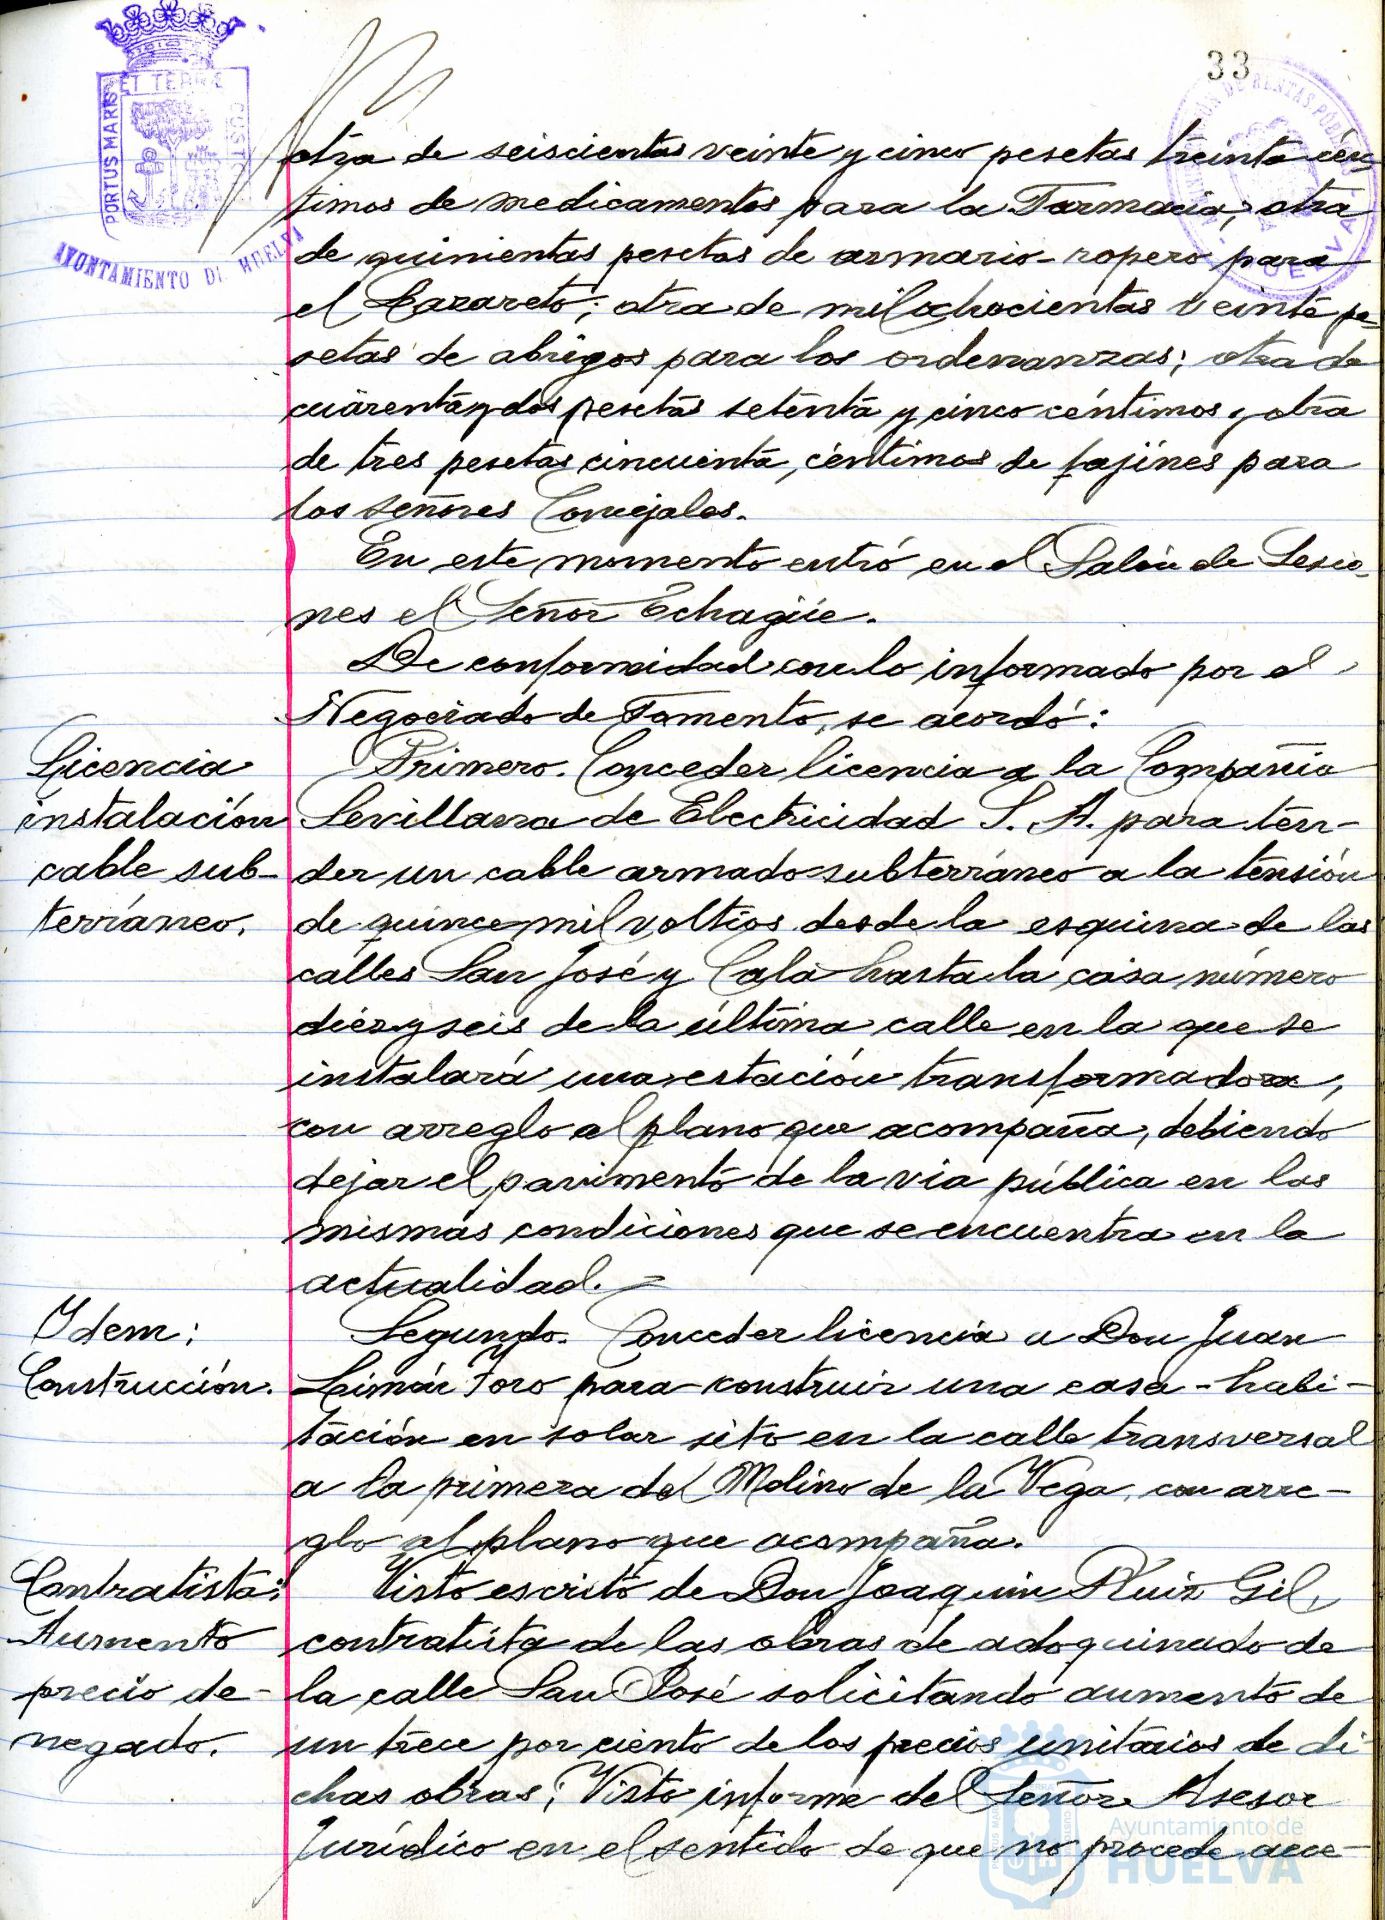 33
PORTUS MARIS ET TERRÆ CUSTODIA
AYUNTAMIENTO DE HUELVA
otra de seiscientas veinte y cinco pesetas treinta cén
timos de medicamentos para la Farmacia; otra
de quinientas pesetas de armario-ropero para
el Lazareto; otra de mil ochocientas veinte pe-
setas de abrigos para los ordenanzas; otra de
cuarenta y dos pesetas setenta y cinco céntimos, otra
de tres pesetas cincuenta céntimos de fajines para
los señores Concejales.
En este momento entró en el Salón de Sesio-
nes el Señor Echagüe.
De conformidad con lo informado por el
Negociado de Fomento, se acordó:
Licencia
instalación
cable sub-
terráneo.
Primero. Conceder licencia a la Compañia
Sevillana de Electricidad S. A. para ten-
der un cable armado subterráneo a la tensión
de quince mil voltios desde la esquina de las
calles San José y Cala hasta la casa número
diez y seis de la última calle en la que se
instalará una estación transformadora,
con arreglo al plano que acompaña, debiendo
dejar el pavimento de la via pública en las
mismas condiciones que se encuentra en la
actualidad.=
Idem:
Construcción.
Segundo. Conceder licencia a Don Juan
Leimár Toro para construir una casa-habi-
tación en solar sito en la calle transversal
a la primera del Molino de la Vega, con arre-
glo al plano que acompaña.
Contratista:
Aumento
precio de-
negado.
Visto escrito de Don Joaquin Ruiz Gil,
contratista de las obras de adoquinado de
la calle San José solicitando aumento de
un trece por ciento de los precios unitarios de di
chas obras; Visto informe del Señor Asesor
Jurídico en el sentido de que no procede acce-
Ayuntamiento de
HUELVA